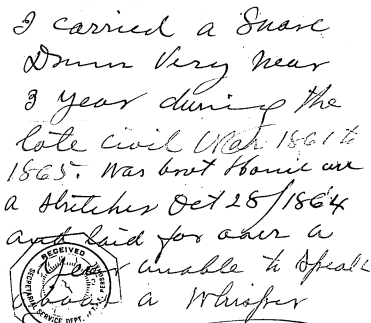 I carried a Snare
Drum Very near
3 year during the
late civil War 1861 to
1865. Was brot Home on
a stretcher Oct 28/1864
and laid for over a
year unable to speak
above a Whisper
RECEIVED
SECRETARIAL SERVICE DEPT.